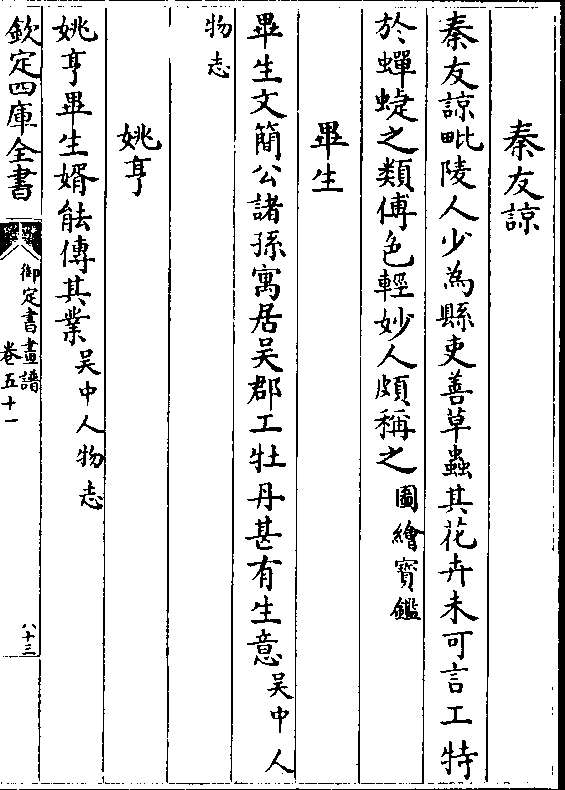 秦友諒
秦友諒毗陵人少為縣吏善草蟲其花卉未可言工特
於蟬蜨之類傅色輕妙人頗稱之圖繪寶鑑
畢生
畢生文簡公諸孫寓居吳郡工牡丹甚有生意吳中人
物志
姚亨
姚亨畢生婿能傳其業吳中人物志
欽定四庫全書
御定書畫譜
卷五十一
八十三